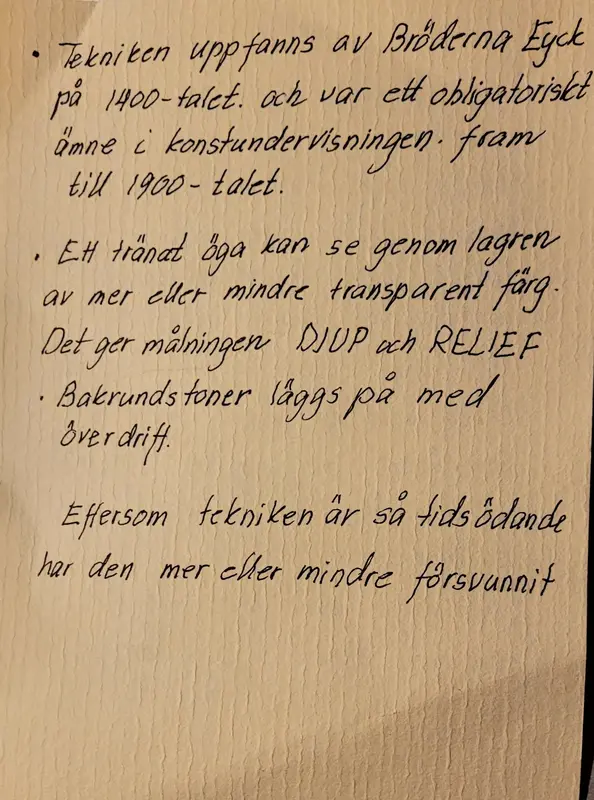 • Tekniken uppfanns av Bröderna Eyck
på 1400-talet. och var ett obligatoriskt
ämne i konstundervisningen. fram
till 1900-talet.
• Ett tränat öga kan se genom lagren
av mer eller mindre transparent färg.
Det ger målningen DJUP och RELIEF
• Bakrundstoner läggs på med
överdrift.
Eftersom tekniken är så tidsödande
har den mer eller mindre försvunnit